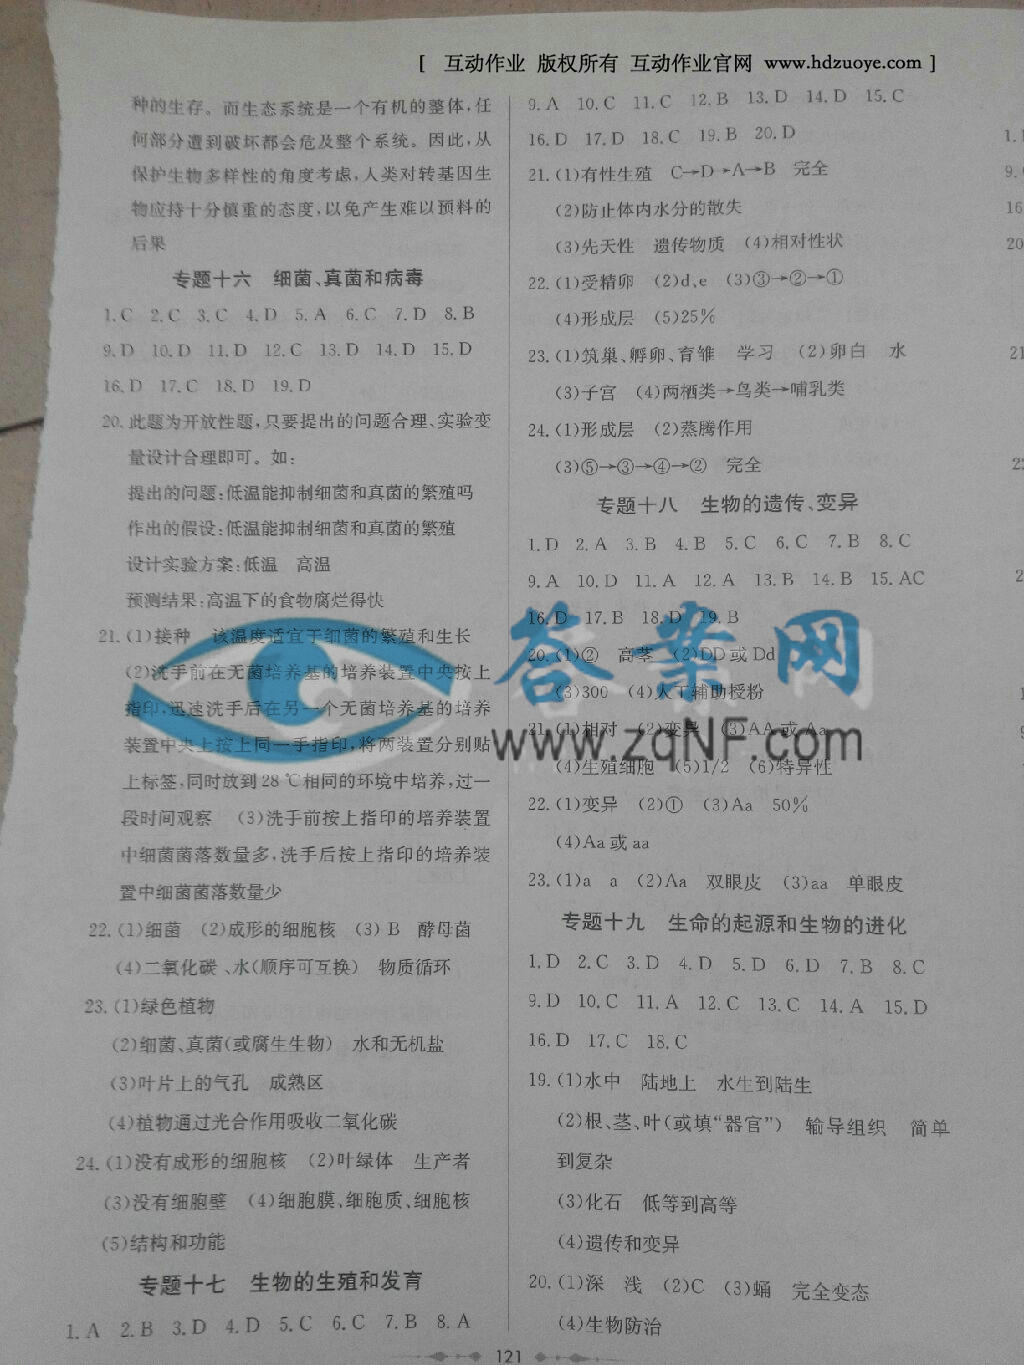 [ 互动作业 版权所有 互动作业官网 www.hdzuoye.com ]
种的生存。而生态系统是一个有机的整体,任
何部分遭到破坏都会危及整个系统。因此,从
保护生物多样性的角度考虑,人类对转基因生
物应持十分慎重的态度,以免产生难以预料的
后果
专题十六 细菌、真菌和病毒
1.C 2.C 3.C 4.D 5.A 6.C 7.D 8.B
9.D 10.D 11.D 12.C 13.D 14.D 15.D
16.D 17.C 18.D 19.D
20.此题为开放性题,只要提出的问题合理、实验变
量设计合理即可。如:
提出的问题:低温能抑制细菌和真菌的繁殖吗
作出的假设:低温能抑制细菌和真菌的繁殖
设计实验方案:低温 高温
预测结果:高温下的食物腐烂得快
21.(1)接种 该温度适宜于细菌的繁殖和生长
(2)洗手前在无菌培养基的培养装置中央按上
指印,迅速洗手后在另一个无菌培养基的培养
装置中央上按上同一手指印,将两装置分别贴
上标签,同时放到28 ℃相同的环境中培养,过一
段时间观察 (3)洗手前按上指印的培养装置
中细菌菌落数量多,洗手后按上指印的培养装
置中细菌菌落数量少
22.(1)细菌 (2)成形的细胞核 (3)B 酵母菌
(4)二氧化碳、水(顺序可互换) 物质循环
23.(1)绿色植物
(2)细菌、真菌(或腐生生物) 水和无机盐
(3)叶片上的气孔 成熟区
(4)植物通过光合作用吸收二氧化碳
24.(1)没有成形的细胞核 (2)叶绿体 生产者
(3)没有细胞壁 (4)细胞膜、细胞质、细胞核
(5)结构和功能
专题十七 生物的生殖和发育
1.A 2.B 3.D 4.D 5.C 6.C 7.B 8.A
9.A 10.C 11.C 12.B 13.D 14.D 15.C
16.D 17.D 18.C 19.B 20.D
21.(1)有性生殖 C→D→A→B 完全
(2)防止体内水分的散失
(3)先天性 遗传物质 (4)相对性状
22.(1)受精卵 (2)d、e (3)③→②→①
(4)形成层 (5)25%
23.(1)筑巢、孵卵、育雏 学习 (2)卵白 水
(3)子宫 (4)两栖类→鸟类→哺乳类
24.(1)形成层 (2)蒸腾作用
(3)⑤→③→④→② 完全
专题十八 生物的遗传、变异
1.D 2.A 3.B 4.B 5.C 6.C 7.B 8.C
9.A 10.D 11.A 12.A 13.B 14.B 15.AC
16.D 17.B 18.D 19.B
20.(1)② 高茎 (2)DD或Dd
(3)300 (4)人工辅助授粉
21.(1)相对 (2)变异 (3)AA或Aa
(4)生殖细胞 (5)1/2 (6)特异性
22.(1)变异 (2)① (3)Aa 50%
(4)Aa或aa
23.(1)a a (2)Aa 双眼皮 (3)aa 单眼皮
专题十九 生命的起源和生物的进化
1.D 2.C 3.D 4.D 5.D 6.D 7.B 8.C
9.D 10.C 11.A 12.C 13.C 14.A 15.D
16.D 17.C 18.C
19.(1)水中 陆地上 水生到陆生
(2)根、茎、叶(或填“器官”) 输导组织 简单
到复杂
(3)化石 低等到高等
(4)遗传和变异
20.(1)深 浅 (2)C (3)蛹 完全变态
(4)生物防治
121
答案网
www.zqNF.com